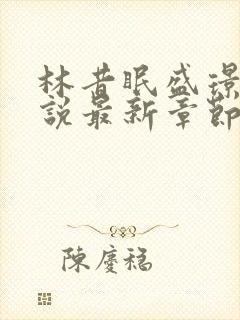 林昔眠盛璟
說最新章節
陳慶稳